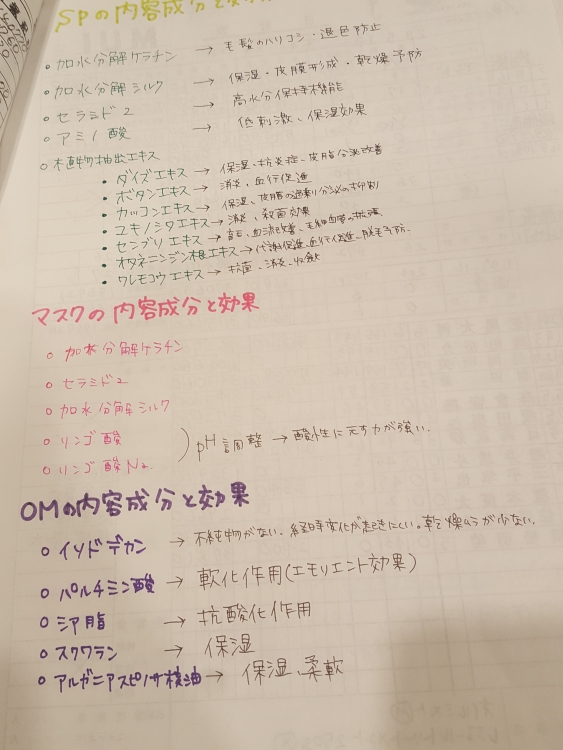 SPの内容成分と効果
○加水分解ケラチン → 毛髪のハリコシ・退色防止
○加水分解シルク → 保湿・皮膜形成・乾燥予防
○セラミド2 → 高水分保持機能
○アミノ酸 → 低刺激、保湿効果
○植物抽出エキス
・ダイズエキス → 保湿、抗炎症、皮脂分泌改善
・ボタンエキス → 消炎、血行促進
・カッコンエキス → 保湿、皮脂の過剰分泌の抑制
・ユキノシタエキス → 消炎、殺菌効果
・センブリエキス → 育毛、血流改善、毛細血管の拡張
・オタネニンジン根エキス → 代謝促進、血行促進、脱毛予防.
・ワレモコウエキス → 抗菌、消炎、収れん
マスクの内容成分と効果
○加水分解ケラチン
○セラミド2
○加水分解シルク
○リンゴ酸
○リンゴ酸Na. ) pH調整 → 酸性に戻す力が強い.
OMの内容成分と効果
○イソドデカン → 不純物がない.経時変化が起きにくい。乾燥ムラが少ない.
○パルチミン酸 → 軟化作用(エモリエント効果)
○シア脂 → 抗酸化作用
○スクワラン → 保湿
○アルガニアスピノサ核油 → 保湿、柔軟